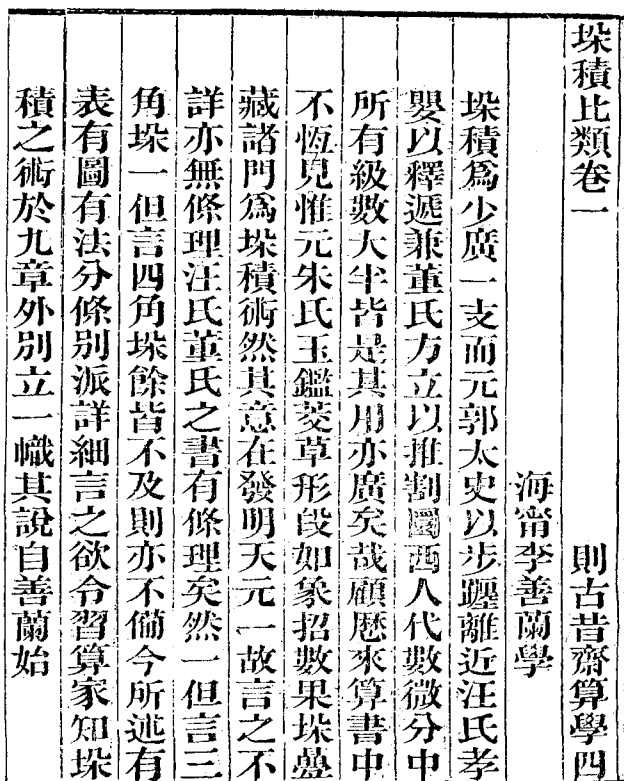 垛積比類卷一　則古昔齋算學四
海甯李善蘭學
垛積爲少廣一支而元郭太史以步躔離近汪氏孝
嬰以釋遞兼董氏方立以推割圜西人代數微分中
所有級數大半皆是其用亦廣矣哉顧厯來算書中
不恆見惟元朱氏玉鑑茭草形段如象招數果垛疊
藏諸門爲垛積術然其意在發明天元一故言之不
詳亦無條理汪氏董氏之書有條理矣然一但言三
角垛一但言四角垛餘皆不及則亦不備今所述有
表有圖有法分條別派詳細言之欲令習算家知垛
積之術於九章外別立一幟其說自善蘭始